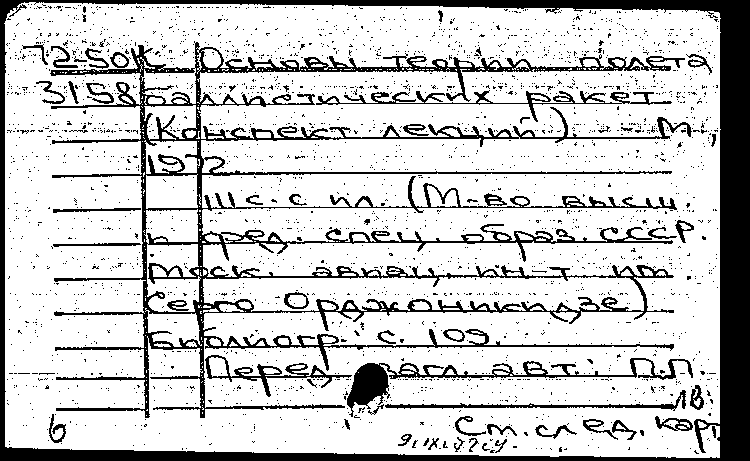 72-50К Основы теории полета
3158 баллистических ракет
(Конспект лекций). - М.,
1972.
111 с. с ил. (М-во высш.
и сред. спец. образ. СССР.
Моск. авиац. ин-т им.
Серго Орджоникидзе)
Библиогр.: с. 109.
Перед загл. авт.: П.П.
ЛВ
6 См. след. карт